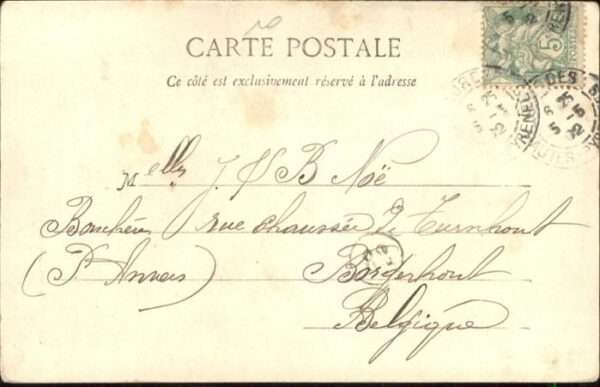 CARTE POSTALE
Ce côté est exclusivement réservé à l'adresse
5
Melles J & B Noë
rue chaussée de Turnhout
(Pr Anvers) Borgerhout
Belgique